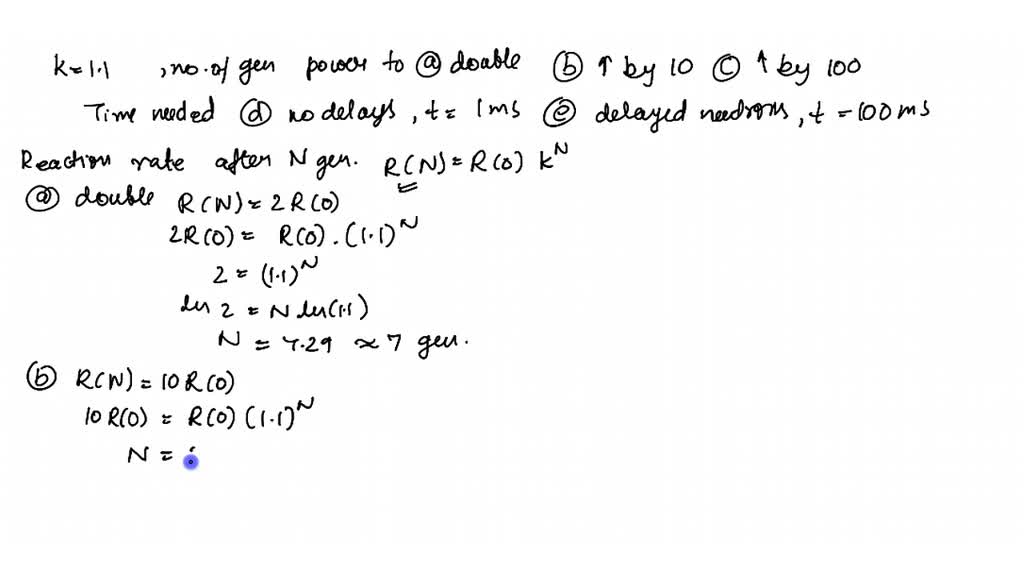 k=1.1 , no. of gen power to ⓐ double ⓑ ↑ by 10 ⓒ ↑ by 100
Time needed ⓓ no delays, t= 1ms ⓔ delayed neutrons, t=100ms
Reaction rate after N gen. R(N)=R(0) k^N
ⓐ double R(N)=2R(0)
2R(0)= R(0).(1.1)^N
2=(1.1)^N
ln 2 = N ln(1.1)
N = 7.29 ≈ 7 gen.
ⓑ R(N)=10R(0)
10R(0) = R(0)(1.1)^N
N =